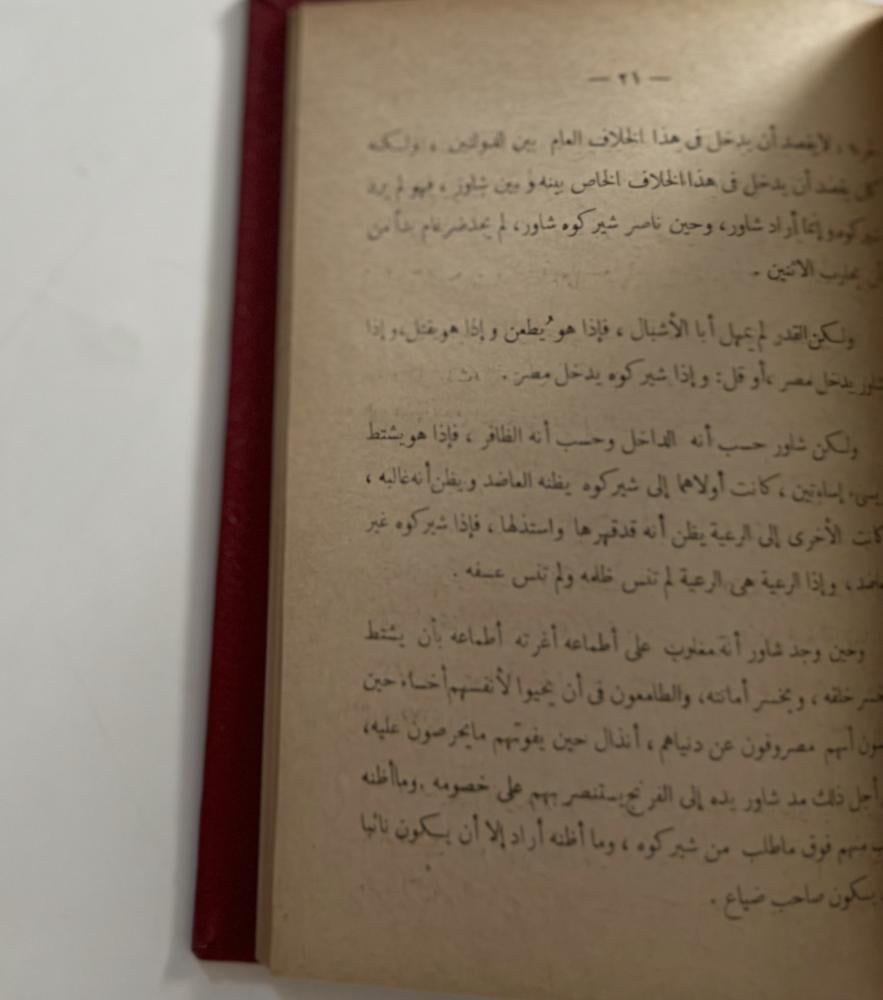 — ٢١ —
، لايقصد أن يدخل فى هذا الخلاف العام بين الدولتين ، ولكنه
كان يقصد أن يدخل فى هذا الخلاف الخاص بينه و بين شاور ، فهو لم يرد
شيركوه و إنما أراد شاور، وحين ناصر شيركوه شاور، لم يجد ضرغام بداً من
أن يحارب الاثنين .
ولكن القدر لم يمهل أبا الأشبال ، فإذا هو يُطعن و إذا هو يقتل، و إذا
شاور يدخل مصر ، أو قل: و إذا شيركوه يدخل مصر .
ولكن شاور حسب أنه الداخل وحسب أنه الظافر ، فإذا هو يشتط
إساءتين ، كانت أولاهما إلى شيركوه يظنه العاضد و يظن أنه غالبه ،
كانت الأخرى إلى الرعية يظن أنه قد قهرها واستذلها ، فإذا شيركوه غير
العاضد ، وإذا الرعية هى الرعية لم تنس ظلمه ولم تنس عسفه .
وحين وجد شاور أنه مغلوب على أطماعه أغرته أطماعه بأن يشتط
خلقه ، و يخسر أمانته، والطامعون فى أن يحيوا لأنفسهم أخساء حين
أنهم مصروفون عن دنياهم ، أنذال حين يفوتهم مايحرصون عليه،
أجل ذلك مد شاور يده إلى الفرنج يستنصر بهم على خصومه . وما أظنه
منهم فوق ماطلب من شيركوه ، وما أظنه أراد إلا أن يكون نائبا
يكون صاحب ضياع .